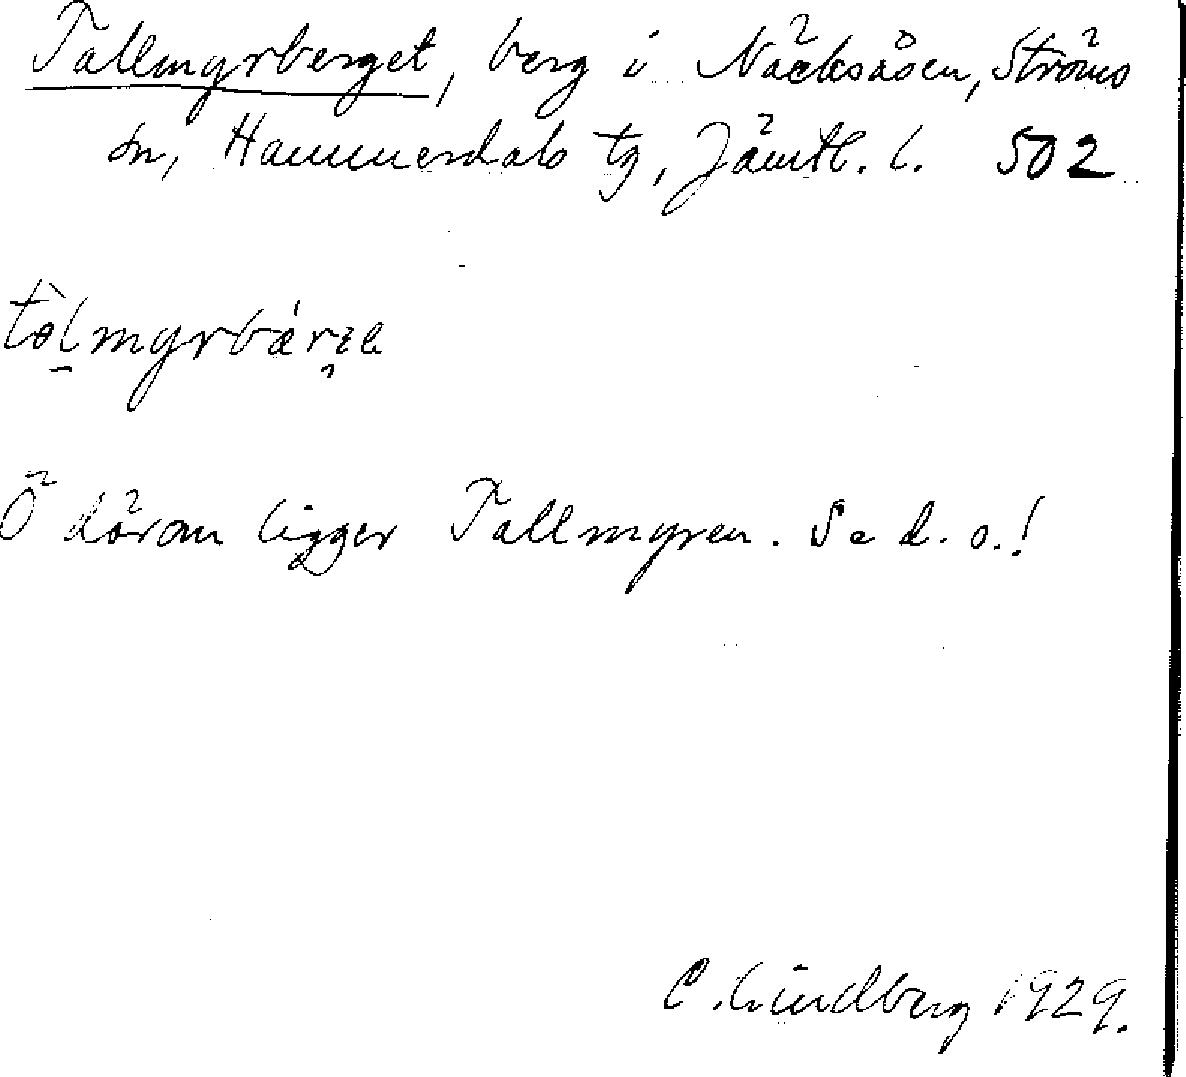 Tallmyrberget, berg i Näcksåsen, Ströms
sn, Hammerdals tg, Jämtl. l. 502
Ö därom ligger Tallmyren. Se d. o.!
C. Lindberg 1929.